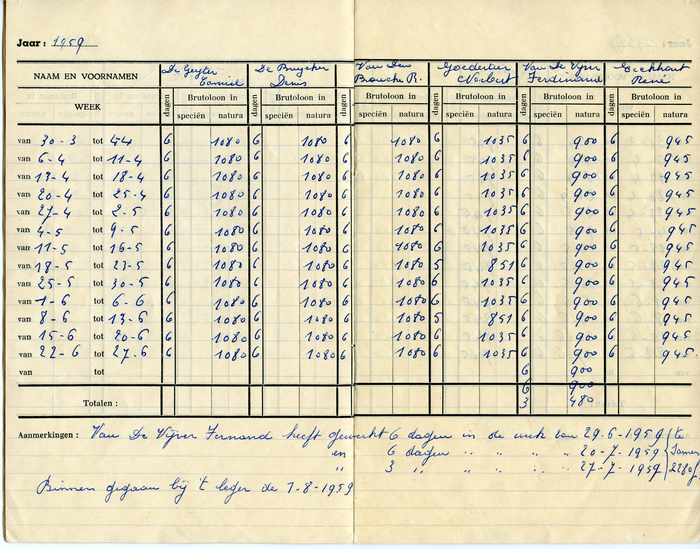 Jaar: 1959
NAAM EN VOORNAMEN De Geyter Camiel De Bruycker Denis Van Den Broucke R. Goedertier Norbert Van De Vijver Ferdinand Eeckhout René
WEEK dagen Brutoloon in dagen Brutoloon in dagen Brutoloon in dagen Brutoloon in dagen Brutoloon in dagen Brutoloon in
speciën natura speciën natura speciën natura speciën natura speciën natura speciën natura
van 30-3 tot 4-4 6 1080 6 1080 6 1080 6 1035 6 900 6 945
van 6-4 tot 11-4 6 1080 6 1080 6 1080 6 1035 6 900 6 945
van 13-4 tot 18-4 6 1080 6 1080 6 1080 6 1035 6 900 6 945
van 20-4 tot 25-4 6 1080 6 1080 6 1080 6 1035 6 900 6 945
van 27-4 tot 2-5 6 1080 6 1080 6 1080 6 1035 6 900 6 945
van 4-5 tot 9-5 6 1080 6 1080 6 1080 6 1035 6 900 6 945
van 11-5 tot 16-5 6 1080 6 1080 6 1080 6 1035 6 900 6 945
van 18-5 tot 23-5 6 1080 6 1080 6 1080 5 851 6 900 6 945
van 25-5 tot 30-5 6 1080 6 1080 6 1080 6 1035 6 900 6 945
van 1-6 tot 6-6 6 1080 6 1080 6 1080 6 1035 6 900 6 945
van 8-6 tot 13-6 6 1080 6 1080 6 1080 5 851 6 900 6 945
van 15-6 tot 20-6 6 1080 6 1080 6 1080 6 1035 6 900 6 945
van 22-6 tot 27-6 6 1080 6 1080 6 1080 6 1035 6 900 6 945
van tot 6 900
6 900
Totalen : 3 480
Aanmerkingen : Van De Vijver Fernand heeft gewerkt 6 dagen in de week van 29-6-1959 (te
en 6 dagen " " " " 20-7-1959 Samen
" 3 " " " " " 27-7-1959 2280f
Binnen gegaan bij 't leger de 7-8-1959